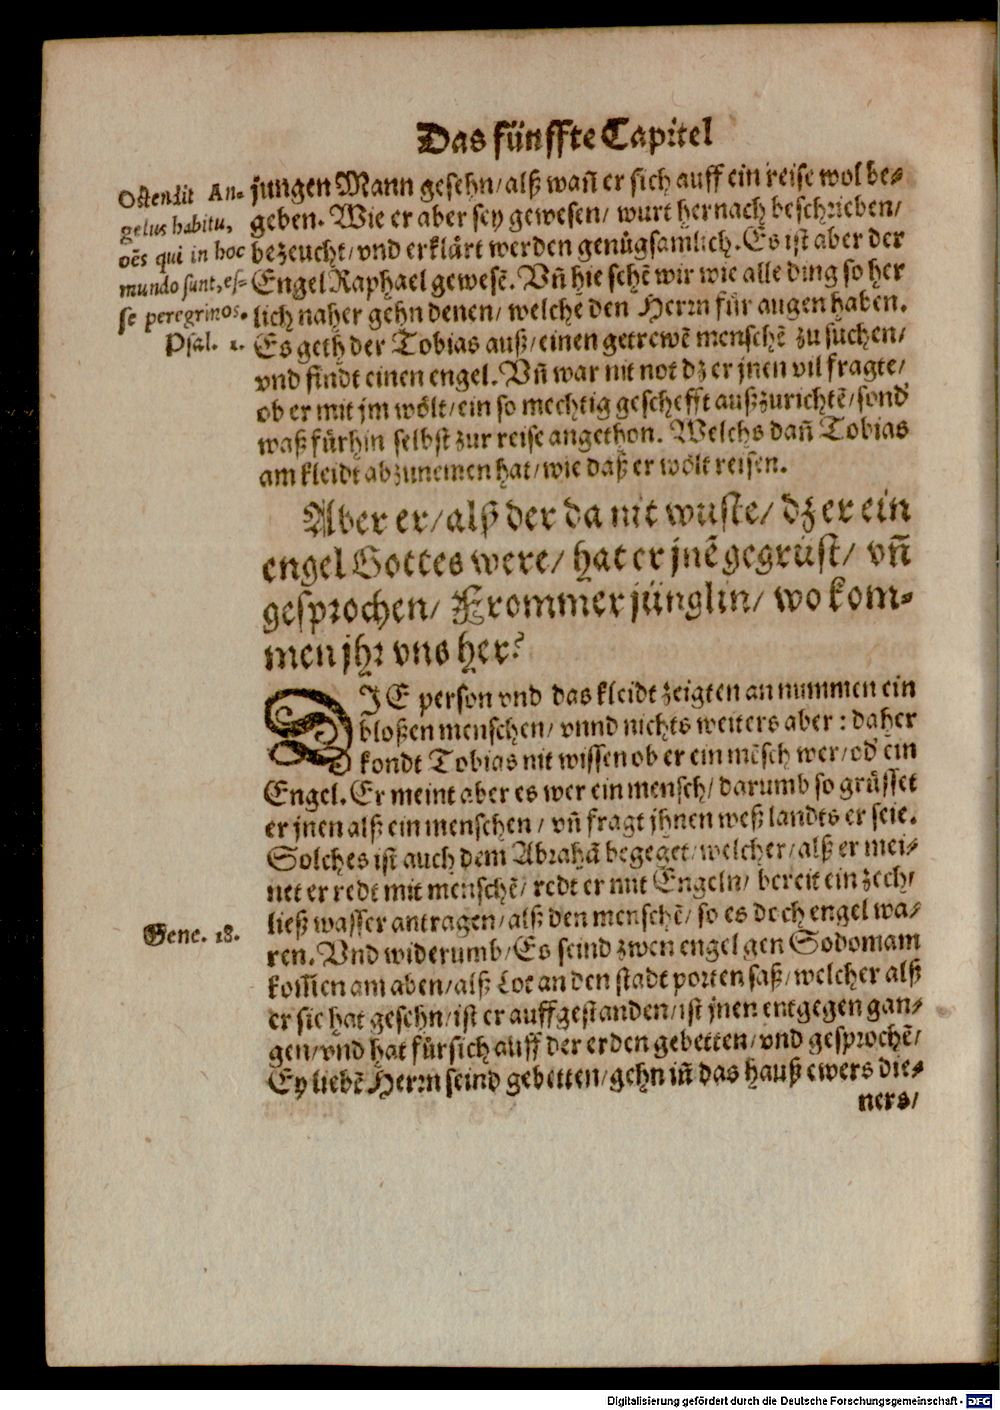 Das fünffte Capitel
Ostendit An-
gelus habitu,
oēs qui in hoc
mundo sunt, es-
se peregrinos.
Psal. 1.
jungen Mann gesehn/ alß wañ er sich auff ein reise wol be-
geben. Wie er aber sey gewesen/ wurt hernach beschrieben/
bezeucht/ vnd erklärt werden genůgsamlich. Es ist aber der
Engel Raphael gewesē. Vñ hie sehē wir wie alle ding so her
lich naher gehn denen/ welche den Herrn für augen haben.
Es geth der Tobias auß/ einen getrewē menschē zu suchen/
vnd findt einen engel. Vñ war nit not dz er jnen vil fragte/
ob er mit jm wölt/ ein so mechtig geschefft außzurichtē/ sond
waß fürhin selbst zur reise angethon. Welchs dañ Tobias
am kleidt abzunemen hat/ wie daß er wölt reisen.
Aber er/ alß der da nit wuste/ dz er ein
engel Gottes were/ hat er jnē gegrüst/ vñ
gesprochen/ Frommer jünglin/ wo kom-
men jhr vns her?
DIE person vnd das kleidt zeigten an nummen ein
bloßen menschen/ vnnd nichts weiters aber: daher
kondt Tobias nit wissen ob er ein mēsch wer/ od ein
Engel. Er meint aber es wer ein mensch/ darumb so grüsset
er jnen alß ein menschen/ vñ fragt jhnen weß landts er seie.
Solches ist auch dem Abrahā begeget/ welcher/ alß er mei-
net er redt mit menschē/ redt er mit Engeln/ bereit ein zech/
ließ wasser antragen/ alß den menschē/ so es doch engel wa-
Gene. 18.
ren. Vnd widerumb/ Es seind zwen engel gen Sodomam
kom̃en am aben/ alß Lot an den stadt porten saß/ welcher alß
er sie hat gesehn/ ist er auffgestanden/ ist jnen entgegen gan-
gen/ vnd hat für sich auff der erden gebetten/ vnd gesprochē/
Ey liebē Herrn seind gebetten/ gehn iñ das hauß ewers die-
ners/
Digitalisierung gefördert durch die Deutsche Forschungsgemeinschaft - DFG